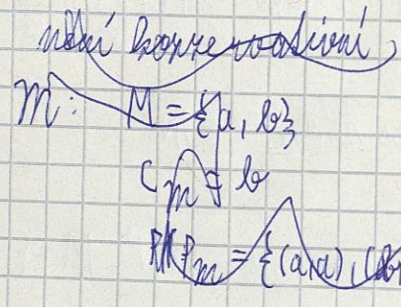 není konzervativní
m: M = {a, b}
C_m = b
= {(a,a), (b